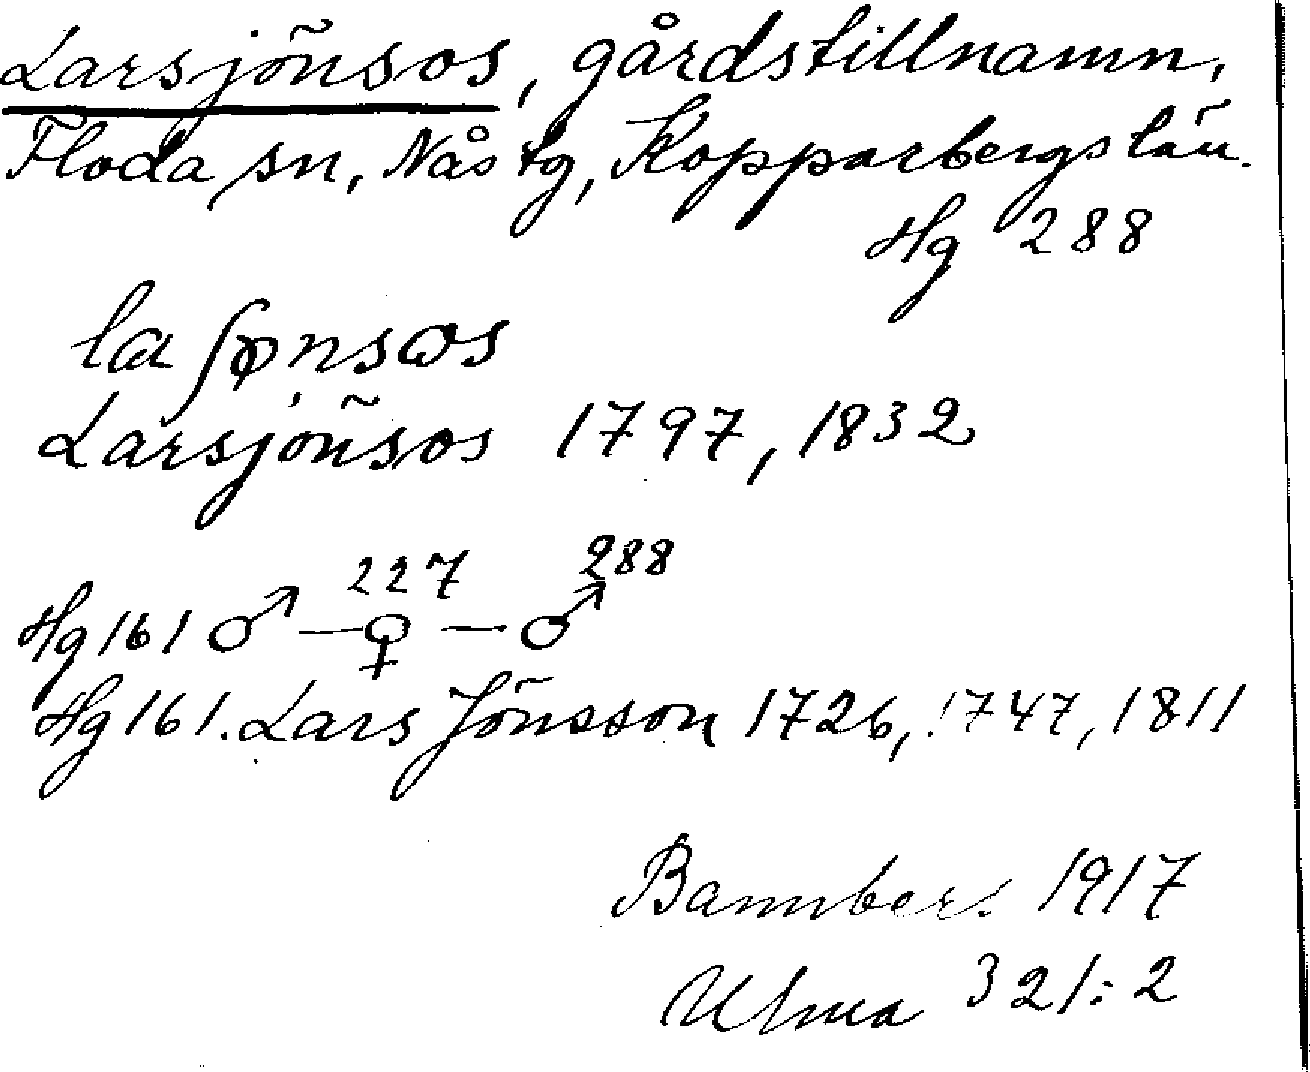 Larsjönsos, gårdstillnamn,
Floda sn, Nås tg, Kopparbergs län.
Hg 288
laʃφnsωs
Larsjönsos 1797, 1832
227 288
Hg 161 ♂ — ♀ — ♂
Hg 161. Lars Jönsson 1726, 1747, 1811
Bannbers 1917
Ulma 321:2